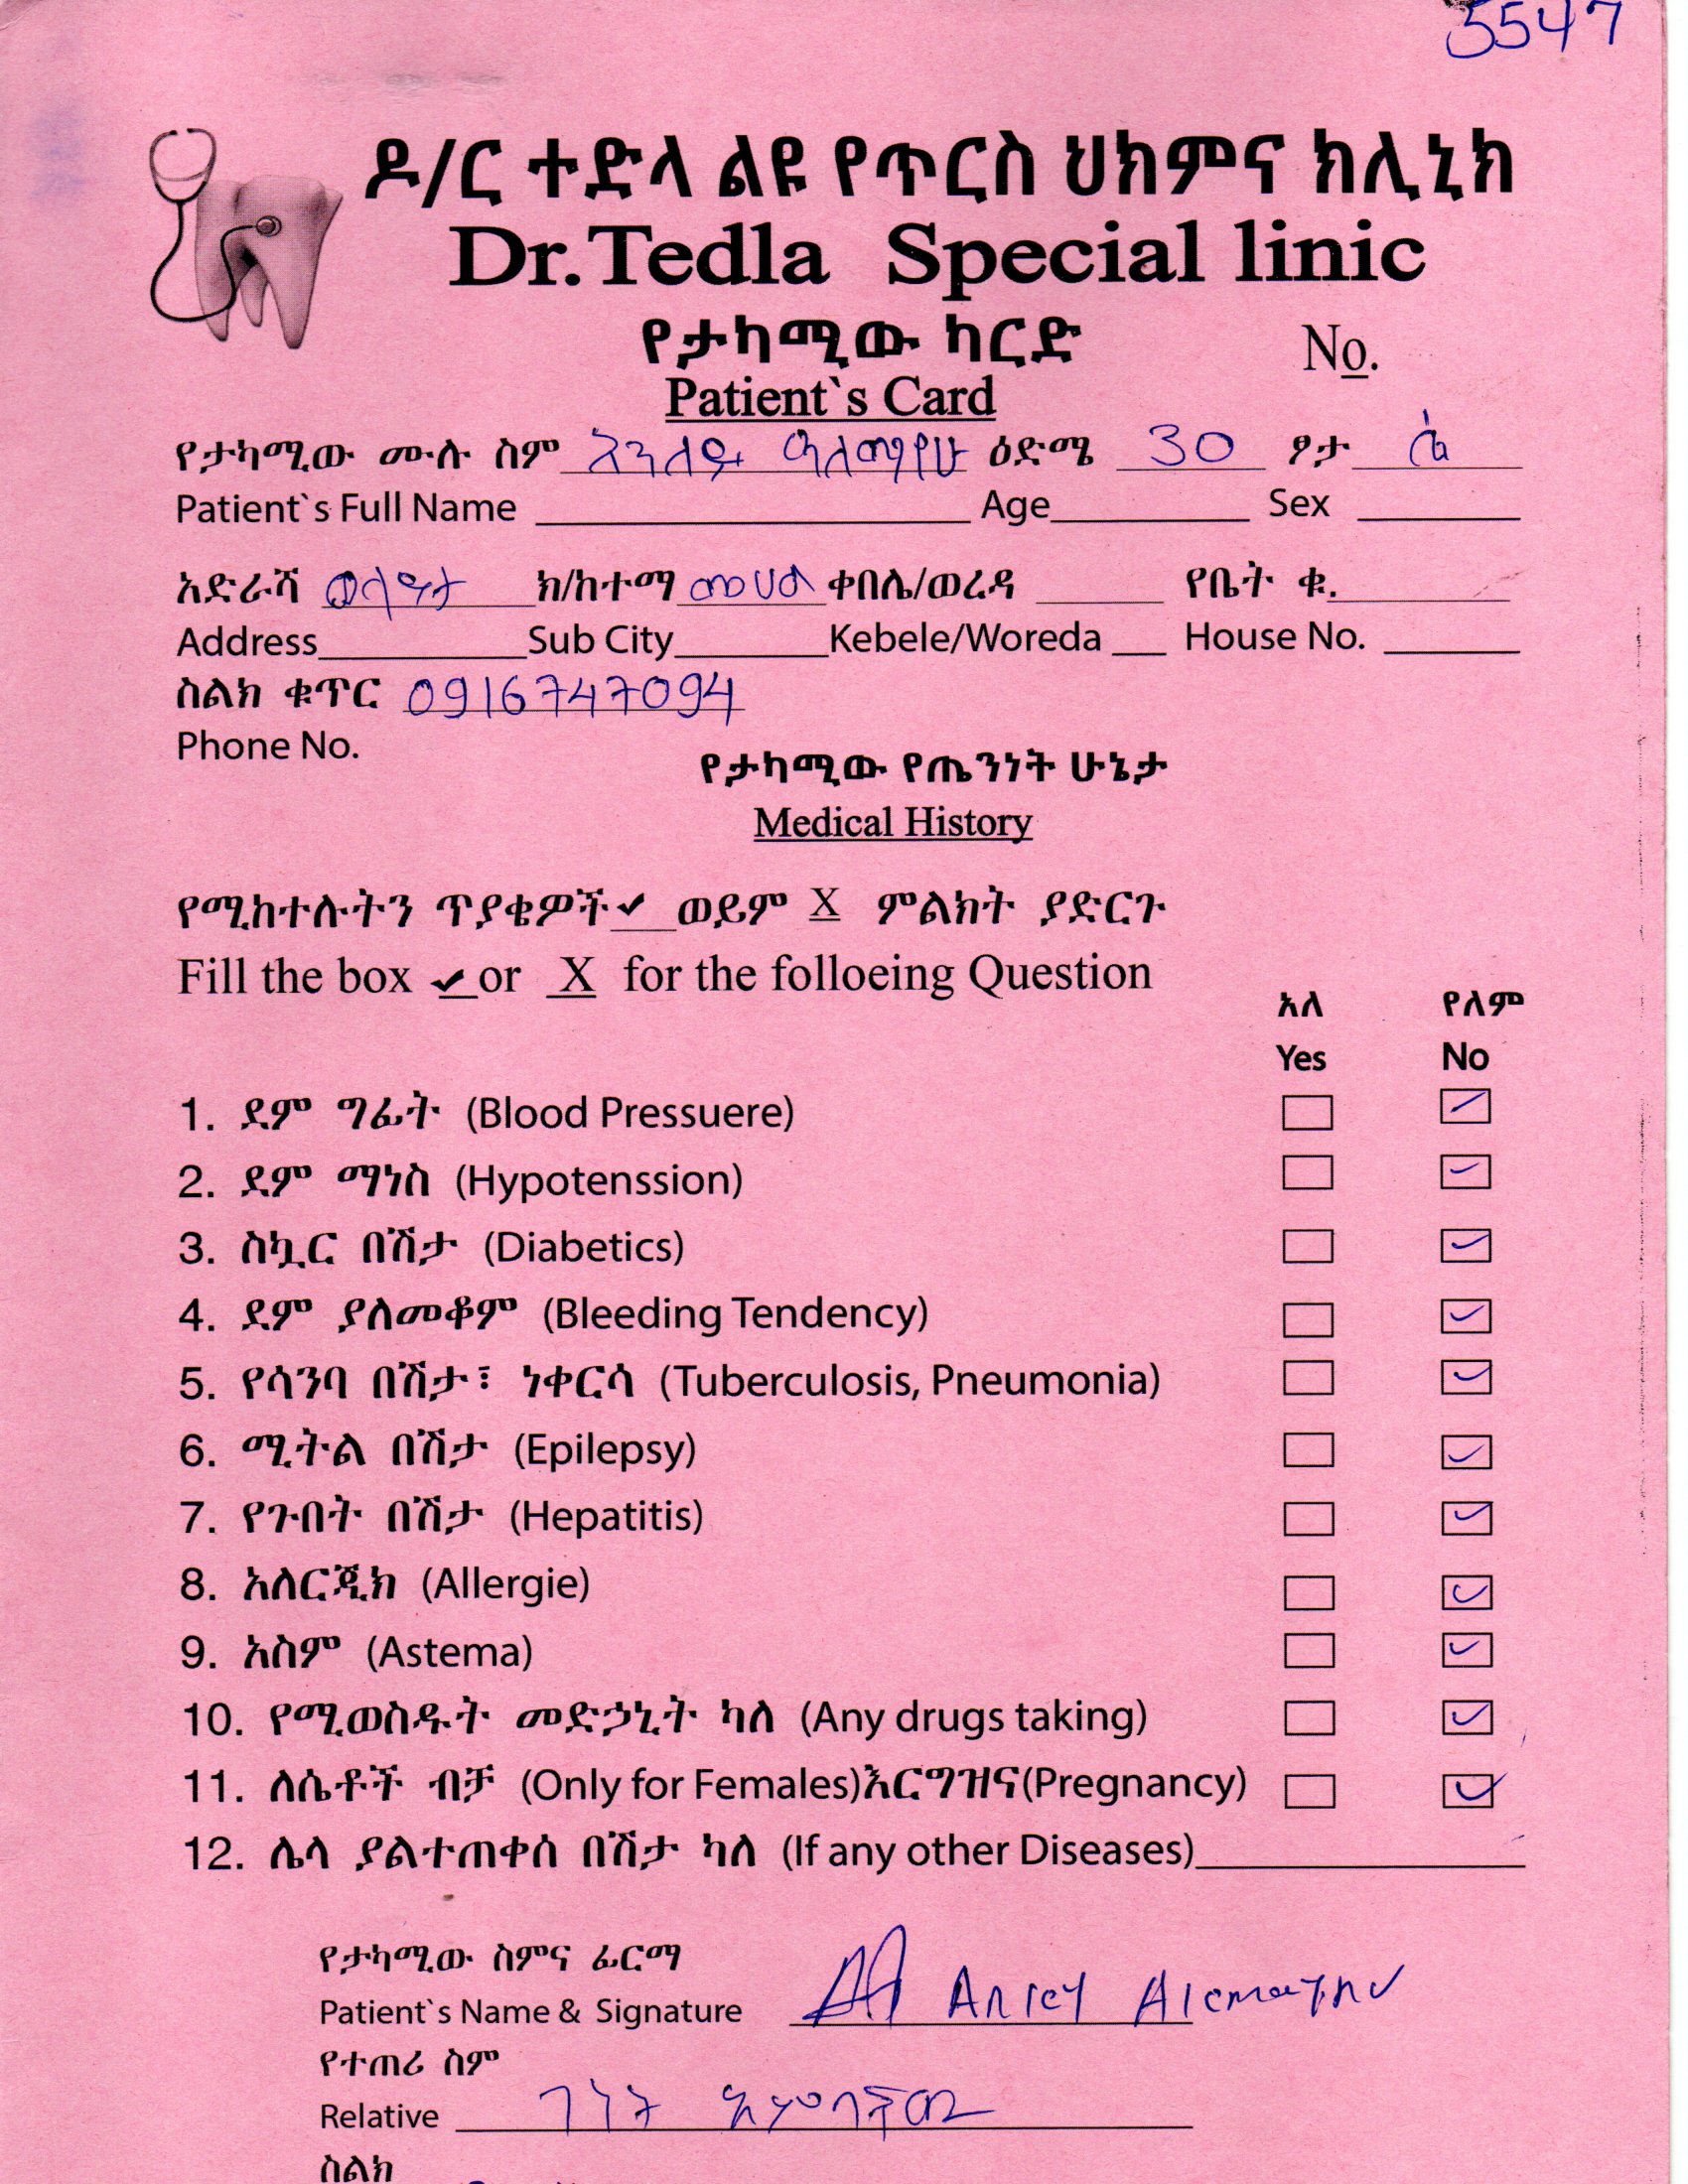 5547
ዶ/ር ተድላ ልዩ የጥርስ ህክምና ክሊኒክ
Dr.Tedla Special linic
የታካሚው ካርድ
No.
Patient`s Card
የታካሚው ሙሉ ስም አንለይ ዓለማየሁ ዕድሜ 30 ፆታ ሴ
Patient`s Full Name Age Sex
አድራሻ ወላይታ ክ/ከተማ መሀል ቀበሌ/ወረዳ የቤት ቁ.
Address Sub City Kebele/Woreda House No.
ስልክ ቁጥር 0916747094
Phone No.
የታካሚው የጤንነት ሁኔታ
Medical History
የሚከተሉትን ጥያቄዎች ✓ ወይም X ምልክት ያድርጉ
Fill the box ✓ or X for the folloeing Question
አለ የለም
Yes No
1. ደም ግፊት (Blood Pressuere)
2. ደም ማነስ (Hypotenssion)
3. ስኳር በሽታ (Diabetics)
4. ደም ያለመቆም (Bleeding Tendency)
5. የሳንባ በሽታ፣ ነቀርሳ (Tuberculosis, Pneumonia)
6. ሚትል በሽታ (Epilepsy)
7. የጉበት በሽታ (Hepatitis)
8. አለርጂክ (Allergie)
9. አስም (Astema)
10. የሚወስዱት መድኃኒት ካለ (Any drugs taking)
11. ለሴቶች ብቻ (Only for Females)እርግዝና(Pregnancy)
12. ሌላ ያልተጠቀሰ በሽታ ካለ (If any other Diseases)
የታካሚው ስምና ፊርማ
Patient`s Name & Signature Anley Alemayhu
የተጠሪ ስም
Relative ገነት
ስልክ